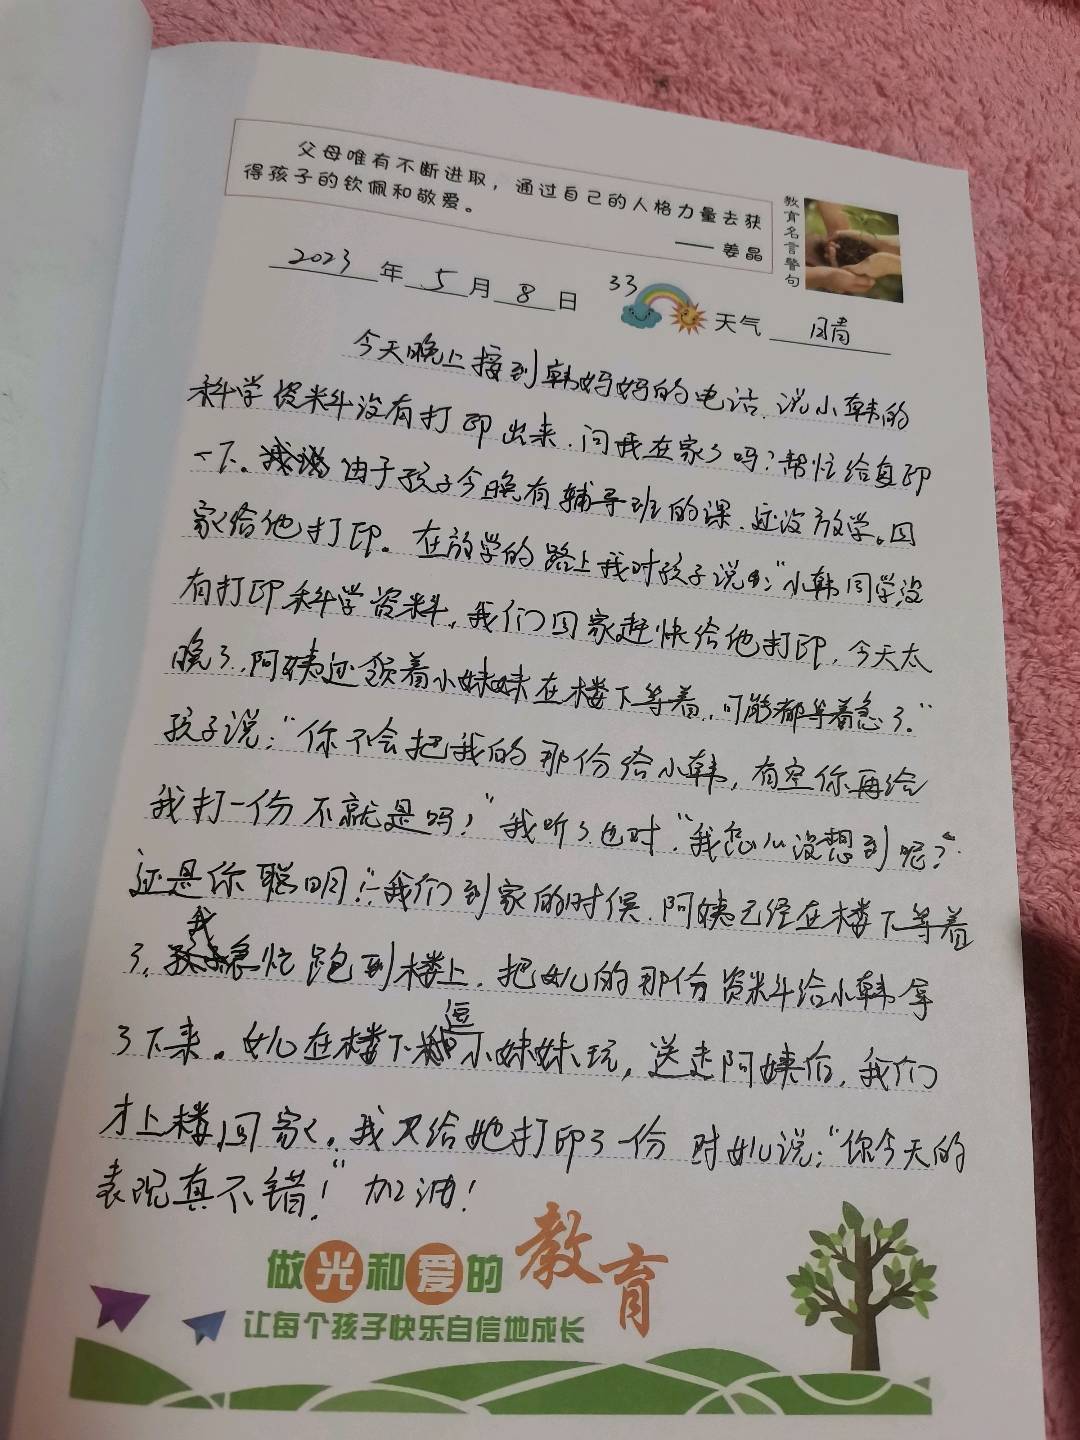 父母唯有不断进取，通过自己的人格力量去获
得孩子的钦佩和敬爱。
—— 姜晶
教育名言警句
2023 年 5 月 8 日
33
天气 晴
今天晚上接到韩妈妈的电话，说小韩的
科学资料没有打印出来，问我在家了吗？帮忙给复印
一下。由于孩子今晚有辅导班的课，还没放学。回
家给他打印。在放学的路上我对孩子说：“小韩同学没
有打印科学资料，我们回家赶快给他打印，今天太
晚了，阿姨还领着小妹妹在楼下等着，可能都等着急了。”
孩子说：“你不会把我的那份给小韩，有空你再给
我打一份不就是吗！”我听了也对，“我怎么没想到呢？
还是你聪明！”我们到家的时候，阿姨已经在楼下等着
了，我急忙跑到楼上，把女儿的那份资料给小韩拿
了下来。女儿在楼下逗小妹妹玩，送走阿姨后，我们
才上楼回家。我又给她打印了一份 对女儿说：“你今天的
表现真不错！”加油！
做光和爱的教育
让每个孩子快乐自信地成长